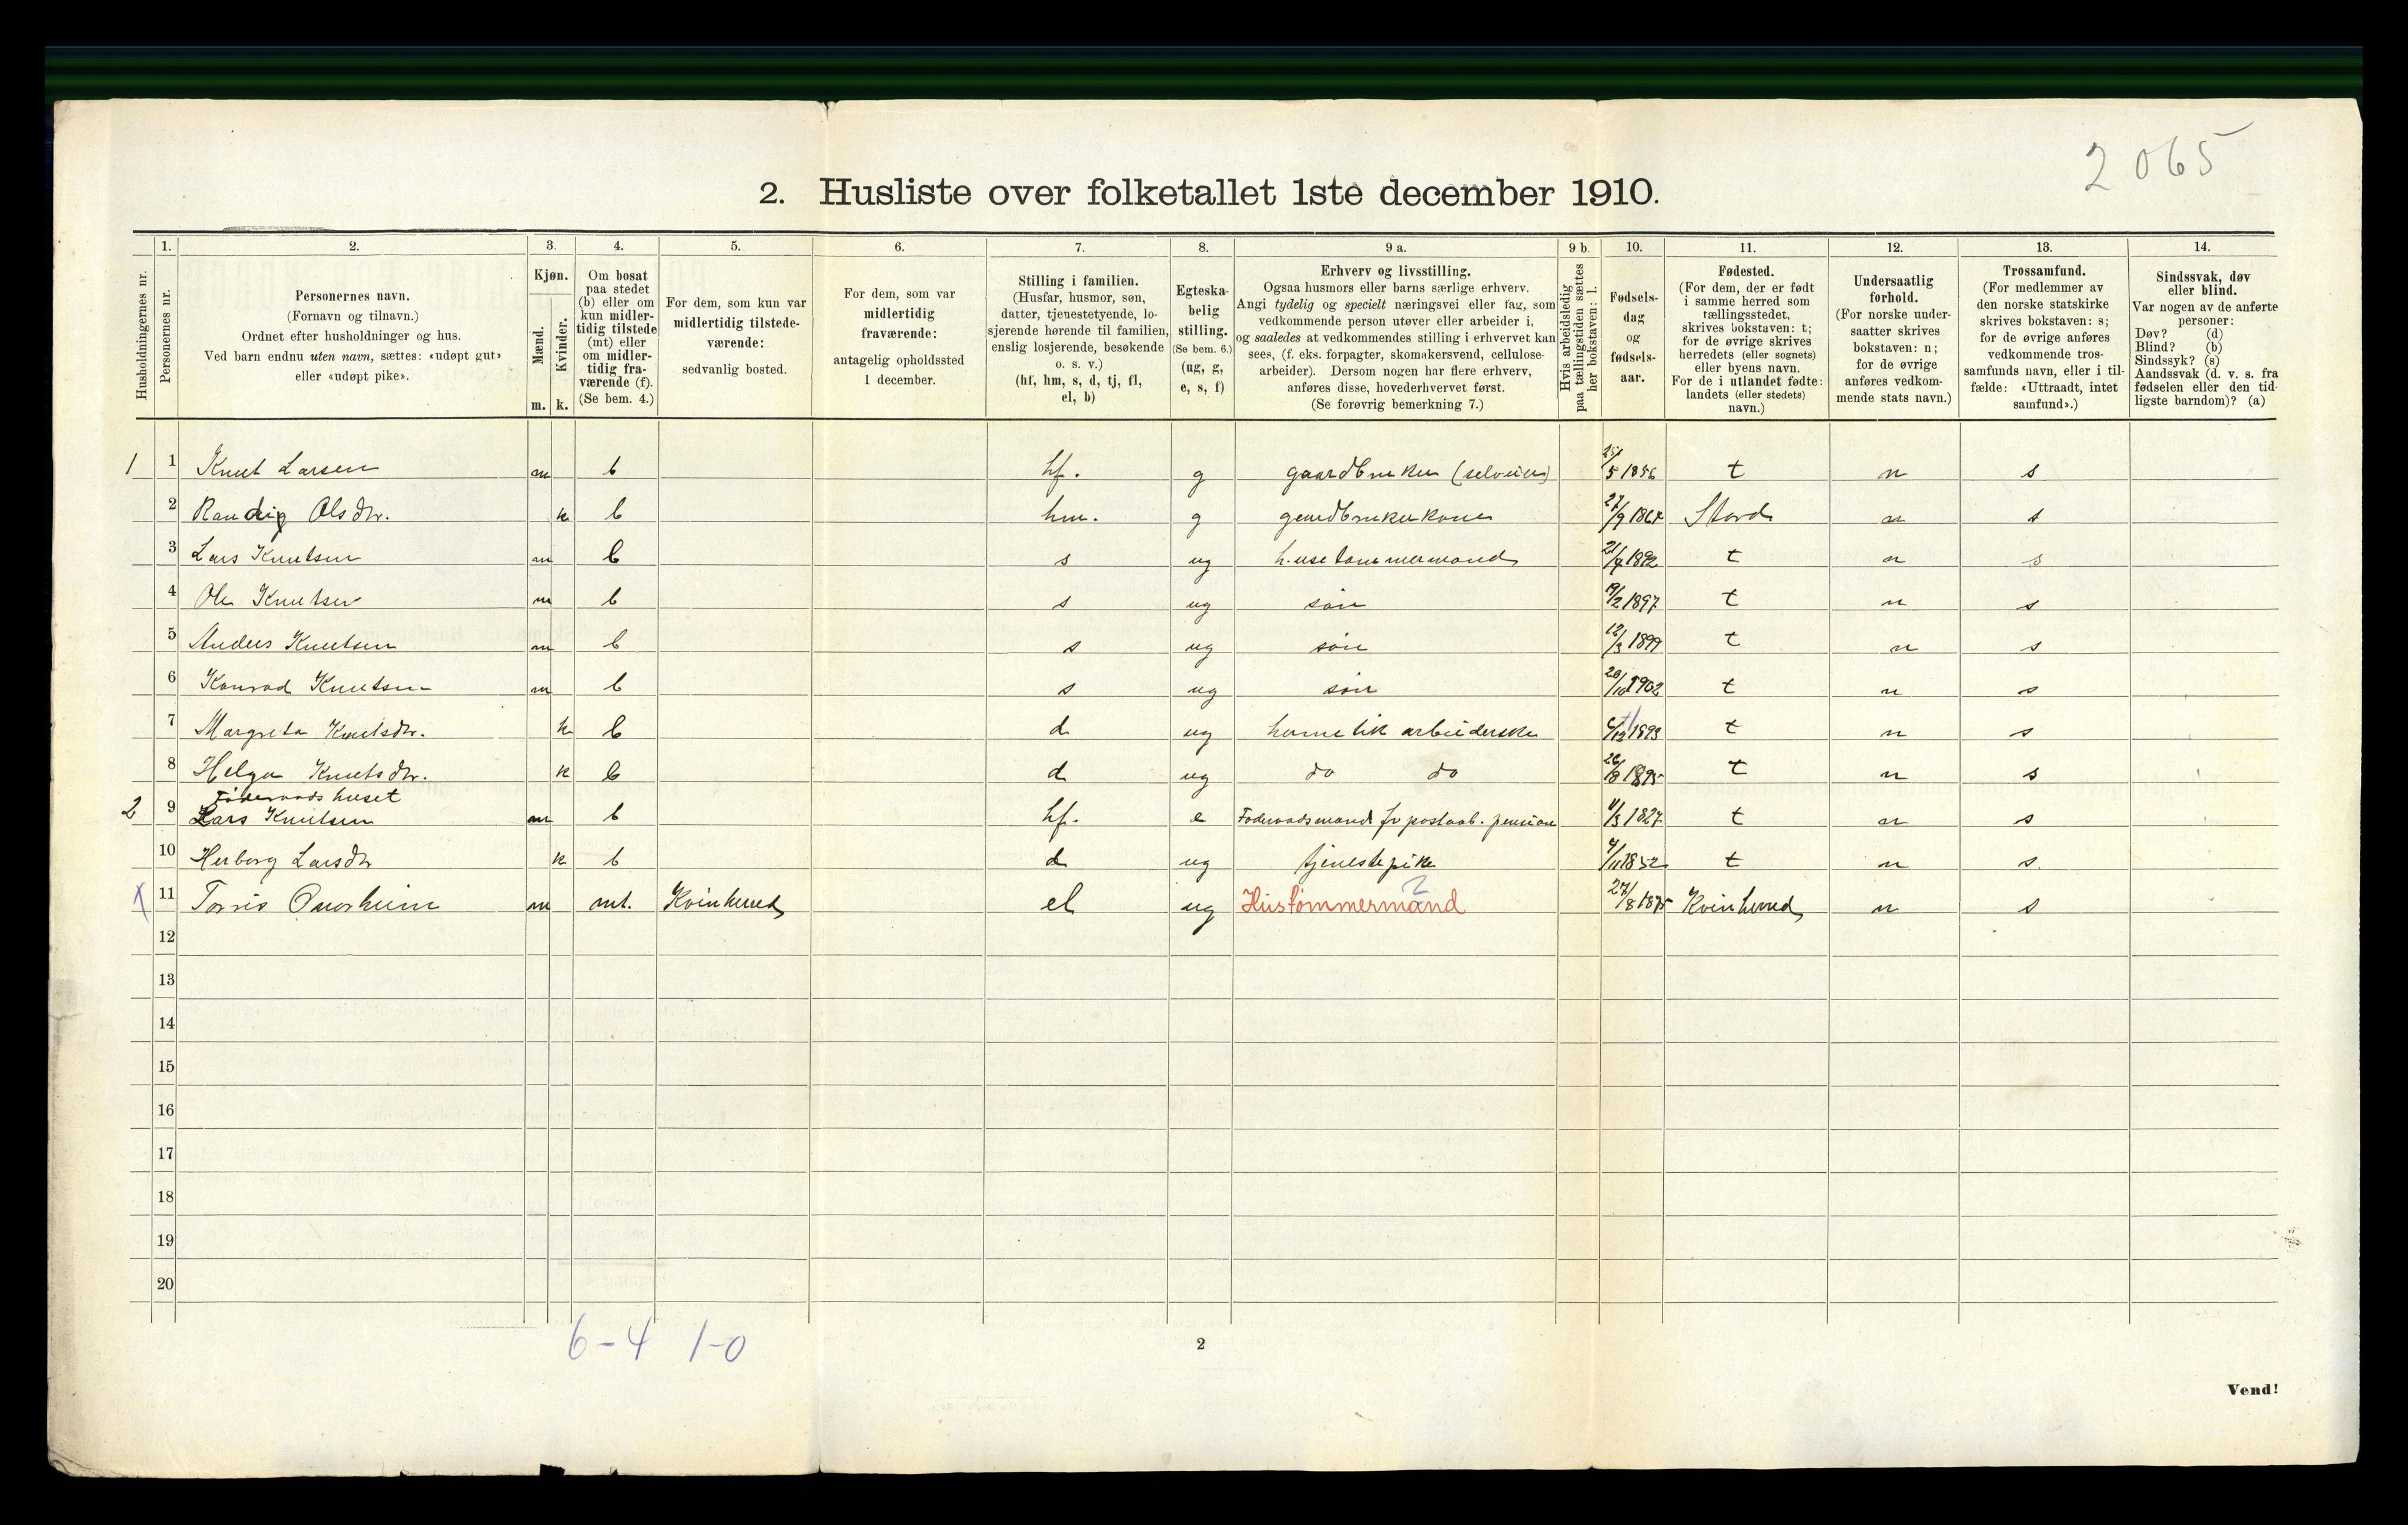 2065
2. Husliste over folketallet 1ste december 1910.
Husholdningernes nr.
1.
Personernes nr.
2.
Personernes navn.
(Fornavn og tilnavn.)
Ordnet efter husholdninger og hus.
Ved barn endnu uten navn, sættes: «udøpt gut»
eller «udøpt pike».
3.
Kjøn.
Mænd.
Kvinder.
m. k.
4.
Om bosat
paa stedet
(b) eller om
kun midler-
tidig tilstede
(mt) eller
om midler-
tidig fra-
værende (f).
(Se bem. 4.)
5.
For dem, som kun var
midlertidig tilstede-
værende:
sedvanlig bosted.
6.
For dem, som var
midlertidig
fraværende:
antagelig opholdssted
1 december.
7.
Stilling i familien.
(Husfar, husmor, søn,
datter, tjenestetyende, lo-
sjerende hørende til familien,
enslig losjerende, besøkende
o. s. v.)
(hf, hm, s, d, tj, fl,
el, b)
8.
Egteska-
belig
stilling.
(Se bem. 6.)
(ug, g,
e, s, f)
9 a.
Erhverv og livsstilling.
Ogsaa husmors eller barns særlige erhverv.
Angi tydelig og specielt næringsvei eller fag, som
vedkommende person utøver eller arbeider i,
og saaledes at vedkommendes stilling i erhvervet kan
sees, (f. eks. forpagter, skomakersvend, cellulose-
arbeider). Dersom nogen har flere erhverv,
anføres disse, hovederhvervet først.
(Se forøvrig bemerkning 7.)
9 b.
Hvis arbeidsledig
paa tællingstiden sættes
her bokstaven: l.
10.
Fødsels-
dag
og
fødsels-
aar.
11.
Fødested.
(For dem, der er født
i samme herred som
tællingsstedet,
skrives bokstaven: t;
for de øvrige skrives
herredets (eller sognets)
eller byens navn.
For de i utlandet fødte:
landets (eller stedets)
navn.)
12.
Undersaatlig
forhold.
(For norske under-
saatter skrives
bokstaven: n;
for de øvrige
anføres vedkom-
mende stats navn.)
13.
Trossamfund.
(For medlemmer av
den norske statskirke
skrives bokstaven: s;
for de øvrige anføres
vedkommende tros-
samfunds navn, eller i til-
fælde: «Uttraadt, intet
samfund».)
14.
Sindssvak, døv
eller blind.
Var nogen av de anførte
personer:
Døv? (d)
Blind? (b)
Sindssyk? (s)
Aandssvak (d. v. s. fra
fødselen eller den tid-
ligste barndom)? (a)
1 1 Knut Larsen m b hf. g gaardbruker (selveier) /5 1856 t n s
2 Randig Olsdtr. k b hm. g gaardbrukerkone 27/9 Stord n s
3 Lars Knutsen m b s ug husetømmermand 21/4 1892 t n s
4 Ole Knutsen m b s ug søn 1897 t n s
5 Anders Knutsen m b s ug søn 12/3 1899 t n s
6 Konrad Knutsen m b s ug søn 20/10 1902 t n s
7 Margreta Knutsdtr. k b d ug huuslik arbeiderske 6/12 1893 t n s
8 Helga Knutsdtr. k b d ug do do 26/8 1895 t n s
Føderaadshuset
2 9 Lars Knutsen m b hf. e Føderaadsmand fv postaab. pension 1827 t n s
10 Herborg Larsdtr k b d ug tjenestepike 4/11 1852 t n s
x 11 Torris Omvikheim m mt. Kvinherred el ug Hustømmermand 2 27/8 1875 Kvinherred n s
12
13
14
15
16
17
18
19
20
6-4 1-0
2
Vend!